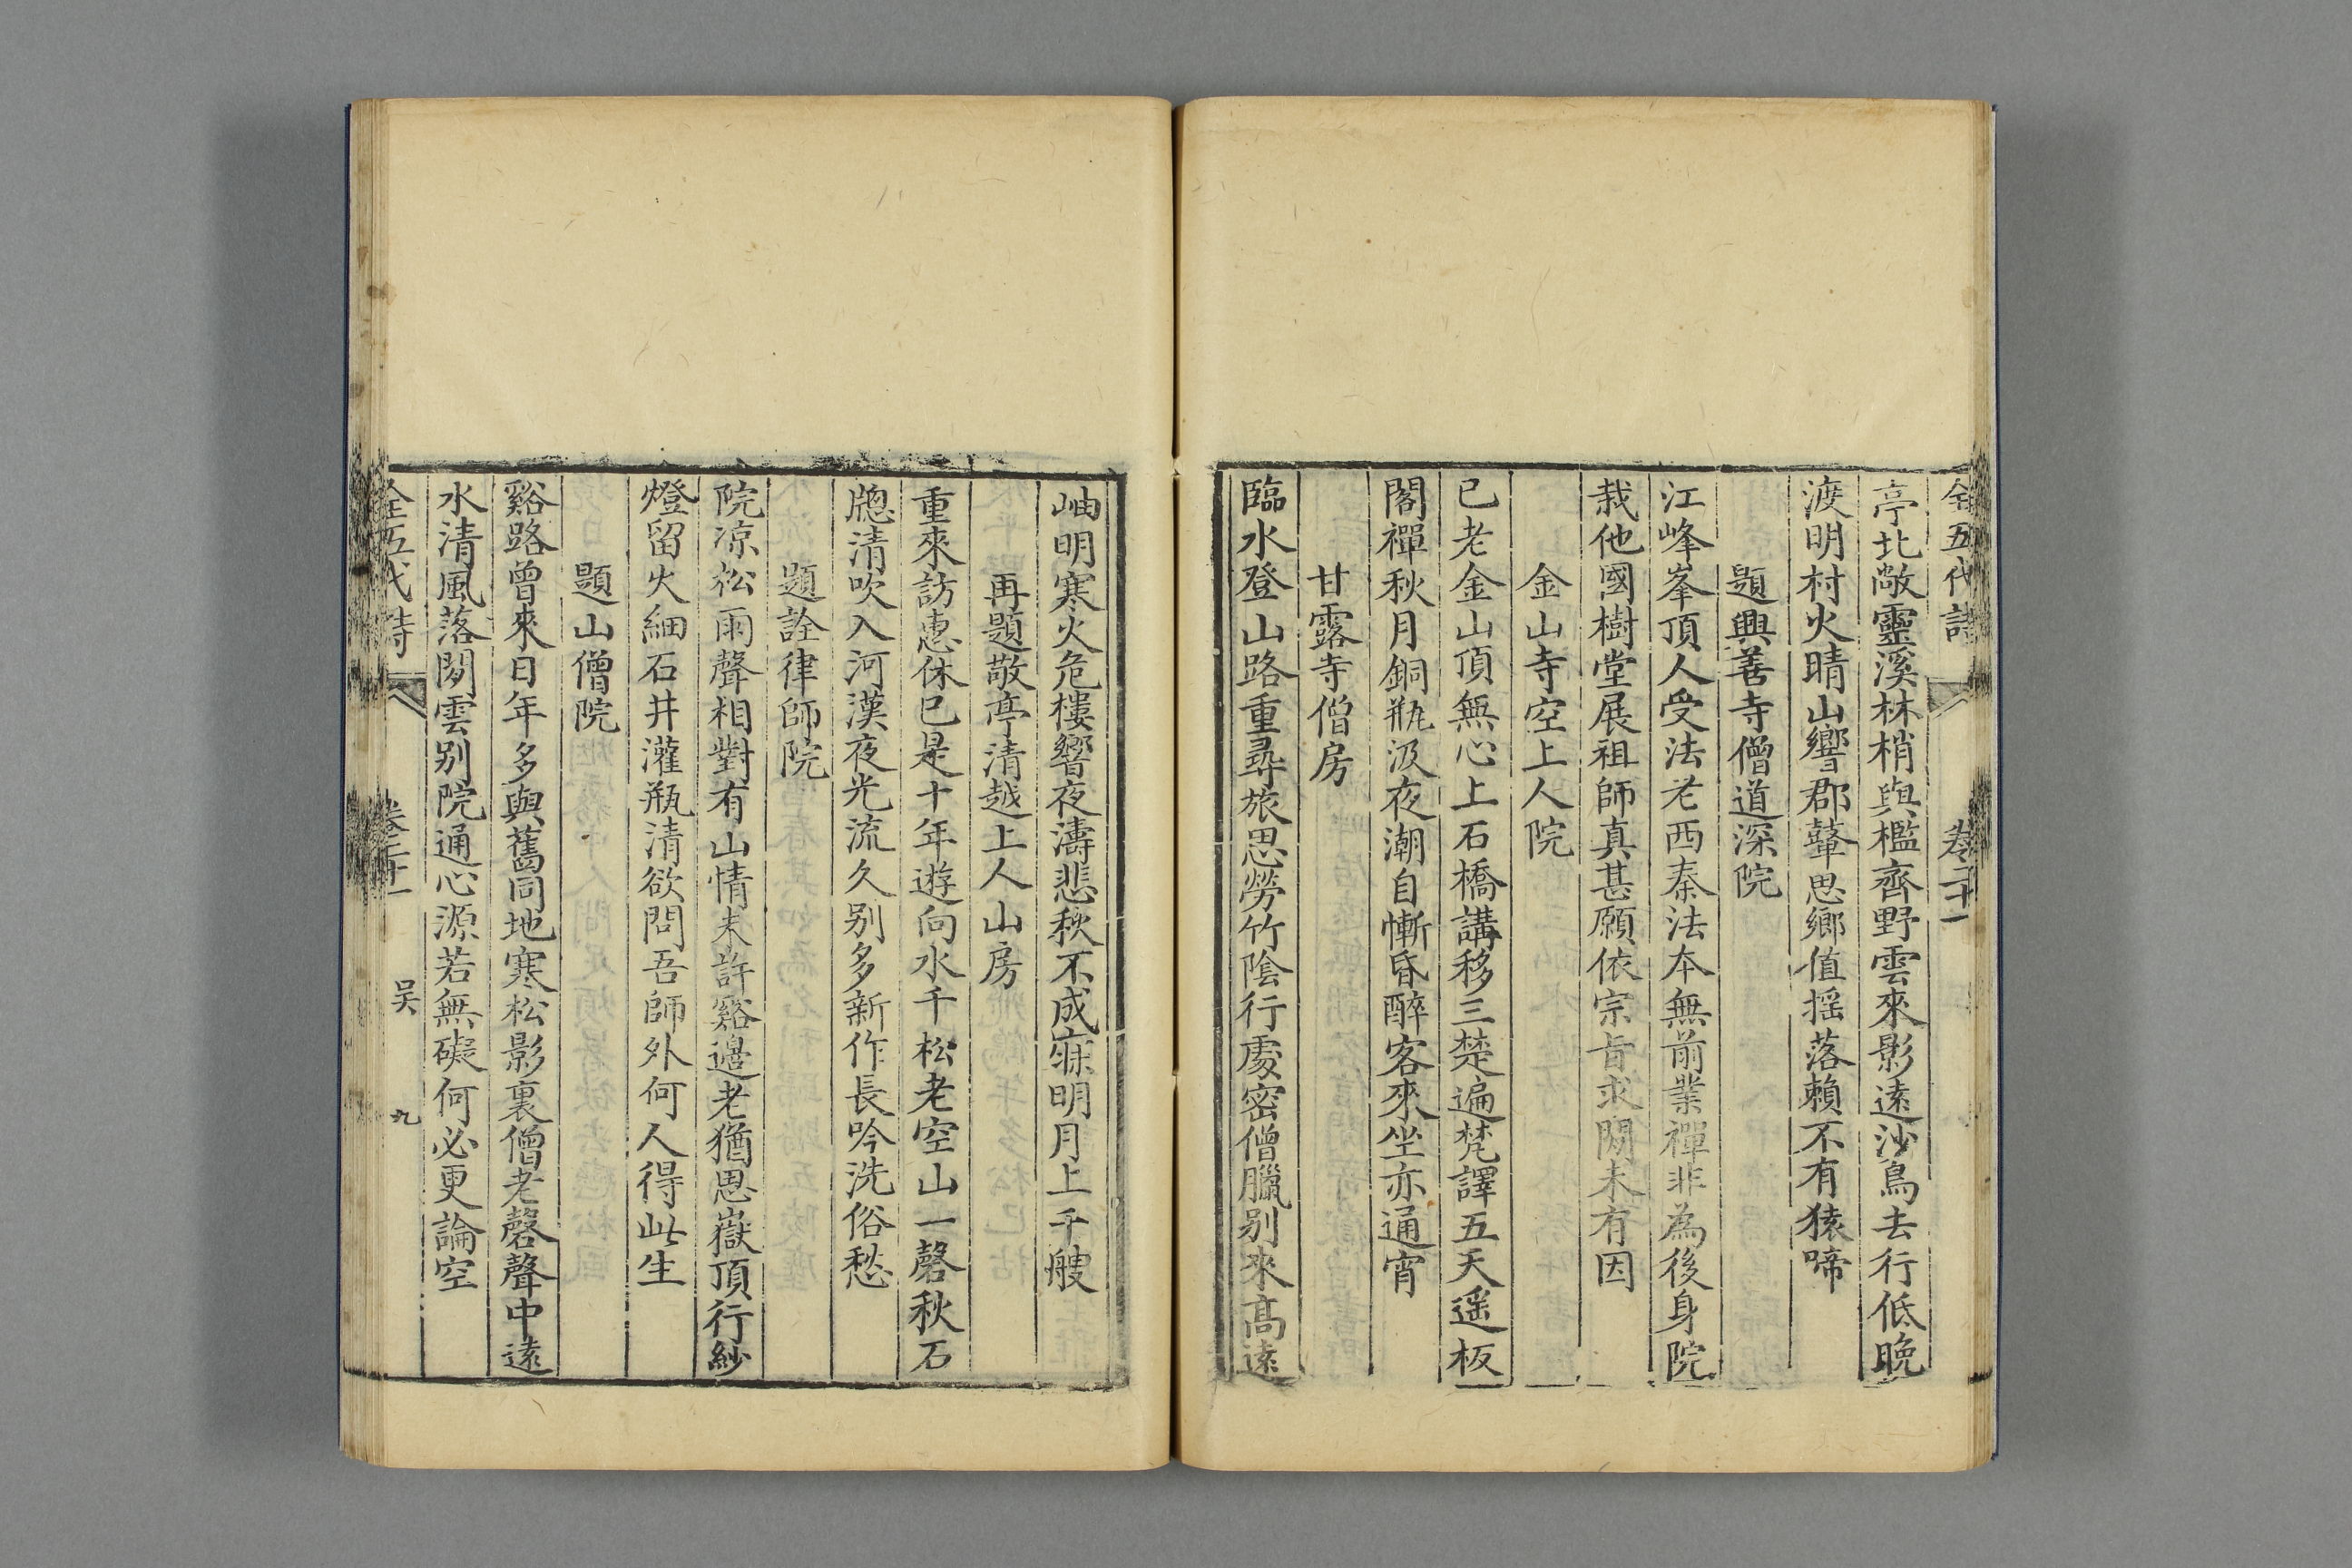 全五代詩 卷二十一
亭北敞靈溪林梢與檻齊野雲來影遠沙鳥去行低晚
渡明村火晴山響郡鼙思鄉值摇落賴不有猿啼
題興善寺僧道深院
江峰峯頂人受法老西秦法本無前業禪非為後身院
栽他國樹堂展祖師真甚願依宗旨求閑未有因
金山寺空上人院
已老金山頂無心上石橋講移三楚遍梵譯五天遥板
閣禪秋月銅瓶汲夜潮自慚昏醉客來坐亦通宵
甘露寺僧房
臨水登山路重尋旅思勞竹陰行處密僧臘别來高遠
岫明寒火危樓響夜濤悲秋不成寐明月上千艘
再題敬亭清越上人山房
重來訪惠休已是十年遊向水千松老空山一磬秋石
牕清吹入河漢夜光流久别多新作長吟洗俗愁
題詮律師院
院凉松雨聲相對有山情未許谿邊老猶思嶽頂行紗
燈留火細石井灌瓶清欲問吾師外何人得此生
題山僧院
谿路曾來日年多與舊同地寒松影裏僧老磬聲中遠
水清風落閑雲别院通心源若無礙何必更論空
全五代詩 卷二十一 吴 九